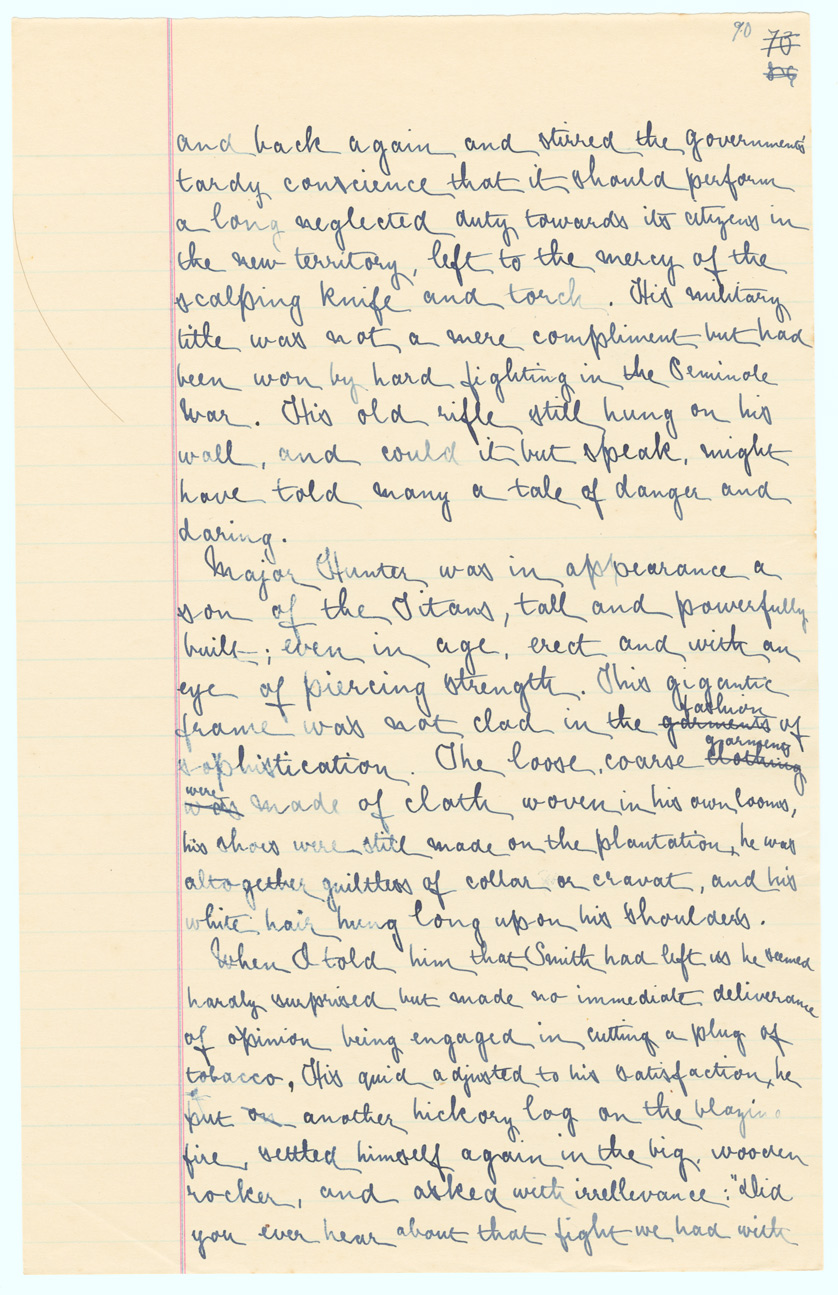 90 73
and back again and stirred the governments'
tardy conscience that it should perform
a long neglected duty towards its citizens in
the new territory, left to the mercy of the
scalping knife and torch. His military
title was not a mere compliment but had
been won by hard fighting in the Seminole
War. His old rifle still hung on his
wall, and could it but speak, might
have told many a tale of danger and
daring.
Major Hunter was in appearance a
son of the Titans, tall and powerfully
built; even in age, erect and with an
eye of piercing strength. This gigantic
fashion
frame was not clad in the garments of
garments
sophistication. The loose, coarse clothing
were
was made of cloth woven in his own looms,
his shoes were still made on the plantation, he was
altogether guiltless of collar or cravat, and his
white hair hung long upon his shoulders.
When I told him that Smith had left us he seemed
hardly surprised but made no immediate deliverance
of opinion being engaged in cutting a plug of
tobacco, His quid adjusted to his satisfaction, he
put on another hickory log on the blazing
fire, settled himself again in the big, wooden
rocker, and asked with irrellevance: "Did
you ever hear about that fight we had with